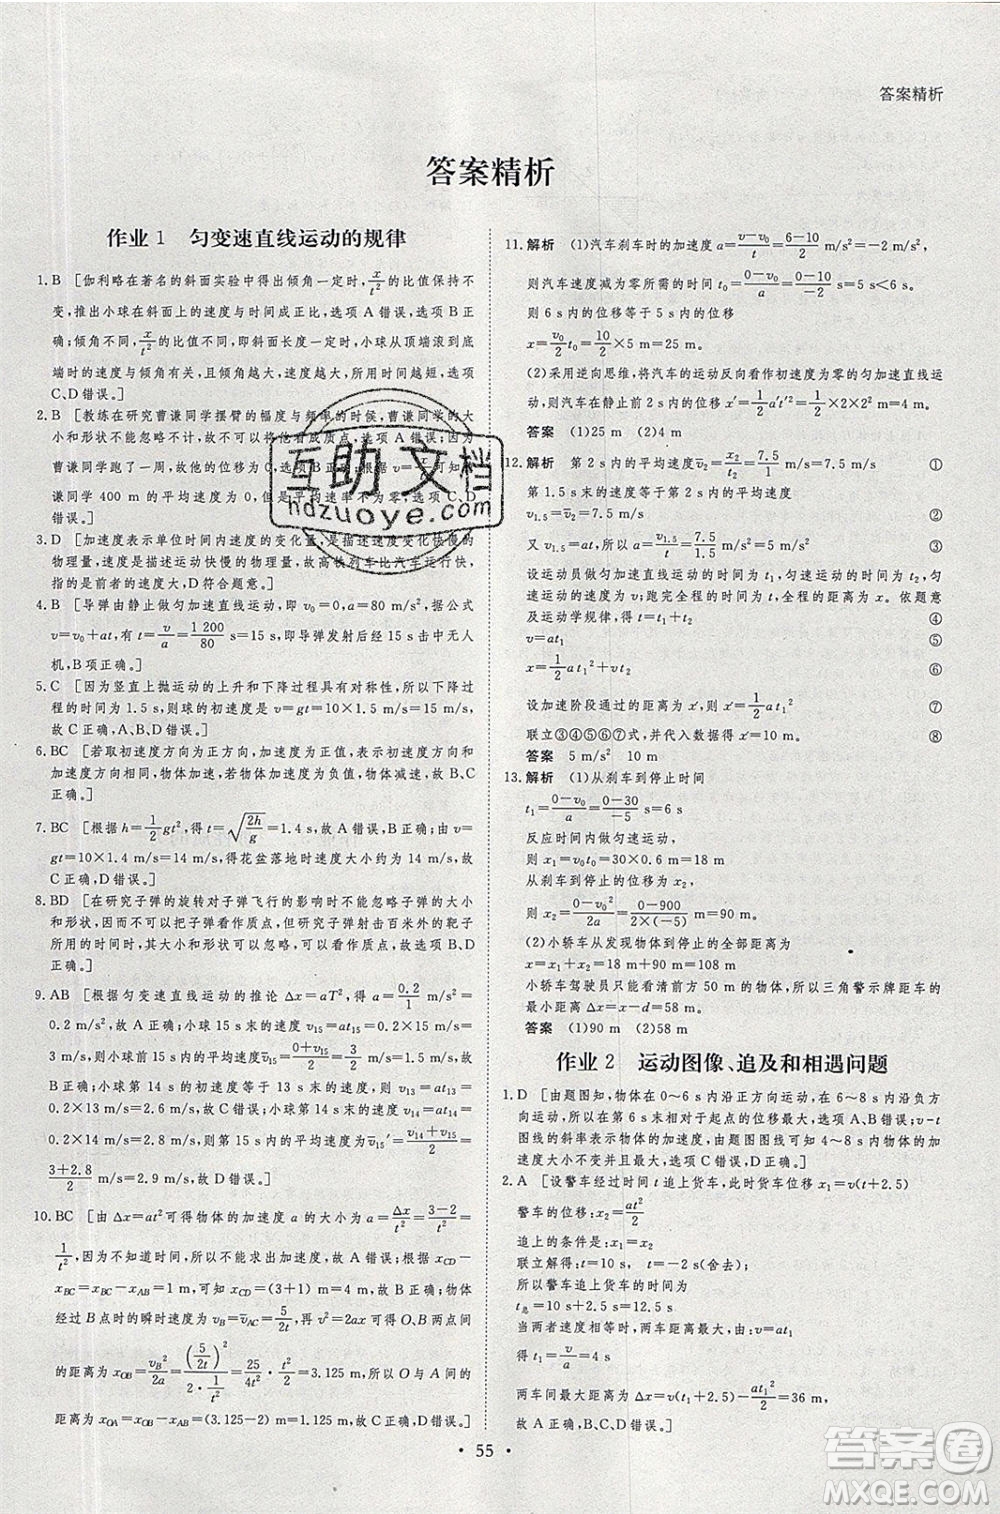 答案精析
答案精析
作业1 匀变速直线运动的规律
1. B [伽利略在著名的斜面实验中得出倾角一定时,x/t²的比值保持不
变,推出小球在斜面上的速度与时间成正比,选项A错误,B正
确;倾角不同,x/t²的比值不同,即斜面长度一定,小球从顶端滚到底
端时的速度不同,且倾角越大,速度越大,时间越短,所以选项
C、D错误。]
2. B [教练在研究曹谦同学摆臂的幅度与频率的时候,曹谦同学的大
小和形状不可忽略不计,不能将他看成质点,故选项A错误;
曹谦同学跑了一周,故选项B正确;根据v=x/t可知曹
谦同学400 m的平均速度为零,但是平均速率不为零,选项C、D
错误。]
3. D [加速度表示单位时间内速度的变化量,是描述速度变化快慢的
物理量,速度是描述运动快慢的物理量,故高铁列车比汽车运行快,
指的是前者的速度大,D符合题意。]
4. B [导弹由静止做匀加速直线运动,即v₀=0,a=80 m/s²,据公式
v=v₀+at,有t=v/a=1 200/80 s=15 s,即导弹发射后15 s击中无人
机,B项正确。]
5. C [因为竖直上抛运动的上升和下降过程具有对称性,所以下降
时间为1.5 s,则球的初速度是v=gt=10×1.5 m/s=15 m/s,
故C正确,A、B、D错误。]
6. BC [若取初速度方向为正方向,加速度为正值,表示初速度方向和
加速度方向相同,物体加速,当加速度为负值,物体减速,故B、C
正确,A、D错误。]
7. BC [根据h=1/2gt²,得t=√(2h/g)=1.4 s,故A错误,B正确;v=
gt=10×1.4 m/s=14 m/s,得花盆落地时速度大小为14 m/s,故
C正确,D错误。]
8. BD [在研究子弹的旋转对子弹飞行的影响时不能忽略子弹的大
小和形状,因而不可以把子弹看作质点;研究子弹射击百米外的靶子
所用的时间时,其大小和形状可以忽略,可以看作质点,故B、D
正确。]
9. AB [根据匀变速直线运动的推论Δx=aT²,得a=0.2/1 m/s²=
0.2 m/s²,故A正确;小球15 s末的速度v₁₅=at₁₅=0.2×15 m/s=
3 m/s,则小球前15 s内的平均速度v̄₁₅=(0+v₁₅)/2=3/2 m/s=
1.5 m/s,故B正确,C错误;小球14 s末的速度v₁₄=at₁₄=
0.2×14 m/s=2.8 m/s,则第15 s内的平均速度v̄₁₅′=(v₁₄+v₁₅)/2=
(3+2.8)/2 m/s=2.9 m/s,故D错误。]
10. BC [由Δx=at²可得物体的加速度a的大小为a=Δx/t²=(3-2)/t²=
1/t²,因为不知道时间,所以不能求出加速度,故A错误;根据x_CD-
x_BC=x_BC-x_AB=1 m,可知x_CD=(3+1) m=4 m,故B正确;物体
经过B点时的瞬时速度v_B=v̄_AC=5/2t,再由v²=2ax可得O、B两点间
的距离为x_OB=v_B²/2a=(5/2t)²/(2·1/t²)=25/4t²·t²/2=3.125 m,所以O与A间的
距离为x_OA=x_OB-x_AB=(3.125-2) m=1.125 m,故C正确,D错误。]
11. 解析 (1)汽车刹车时的加速度a=(v-v₀)/t=(6-10)/2 m/s²=-2 m/s²,
则汽车速度减为零的时间t₀=(0-v₀)/a=(0-10)/-2 s=5 s<6 s。
则6 s内的位移等于5 s内的位移
x=v₀/2 t₀=10/2×5 m=25 m。
(2)采用逆向思维,将汽车的运动反向看作初速度为零的匀加速直线运
动,则汽车在静止前2 s内通过的位移x′=1/2a′t′²=1/2×2×2² m=4 m。
答案 (1)25 m (2)4 m
12. 解析 第2 s内的平均速度v̄₂=x₂/t₂=7.5/1 m/s=7.5 m/s ①
第1.5 s末的速度等于第2 s内的平均速度
v₁.₅=v̄₂=7.5 m/s ②
又v₁.₅=at₁.₅,所以a=v₁.₅/t₁.₅=7.5/1.5 m/s²=5 m/s² ③
设运动员做匀加速直线运动的时间为t₁,匀速运动的时间为t₂,匀速
运动的速度为v;跑完全程的时间为t,全程的距离为x。依题意
及运动学规律,得t=t₁+t₂ ④
v=at₁ ⑤
x=1/2at₁²+vt₂ ⑥
设加速阶段通过的距离为x′,则x′=1/2at₁² ⑦
联立③④⑤⑥⑦式,并代入数据得:x′=10 m ⑧
答案 5 m/s² 10 m
13. 解析 (1)从刹车到停止时间
t₁=(0-v₀)/a=(0-30)/-5 s=6 s
反应时间内做匀速运动,
则x₁=v₀t₀=30×0.6 m=18 m
从刹车到停止的位移为x₂,
则x₂=(0-v₀²)/2a=(0-900)/(2×(-5)) m=90 m
(2)小轿车从发现物体到停止的全部距离为
x=x₁+x₂=108 m
小轿车驾驶员只能看清前方50 m的物体,所以三角警示牌距车的
最小距离Δx=x-d=58 m。
答案 (1)90 m (2)58 m
作业2 运动图像、追及和相遇问题
1. D [由题图知,物体在0~6 s内沿正方向运动,在6~8 s内沿负方
向运动,所以在第6 s末相对于起点的位移最大,选项A、B错误;v-t
图线的斜率表示物体的加速度,由题图图线可知4~8 s内物体的加
速度大小不变且方向相同,选项C错误,D正确。]
2. A [设警车经过时间t追上货车,货车位移x₁=v(t+2.5)
警车的位移:x₂=at²/2
追上的条件是:x₁=x₂
联立解得:t=10 s,t=-2 s(舍去);
所以警车追上货车的时间为
t总=10 s+2.5 s=12.5 s
当两者速度相同时,两车距离最大,由v=at₁
得t₁=v/a=4 s
两车间最大距离为Δx=v(t₁+2.5)-at₁²/2=36 m,
故A正确,B、C、D错误。]
55
互助文档
hdzuoye.com
答案卷
MXQE.COM